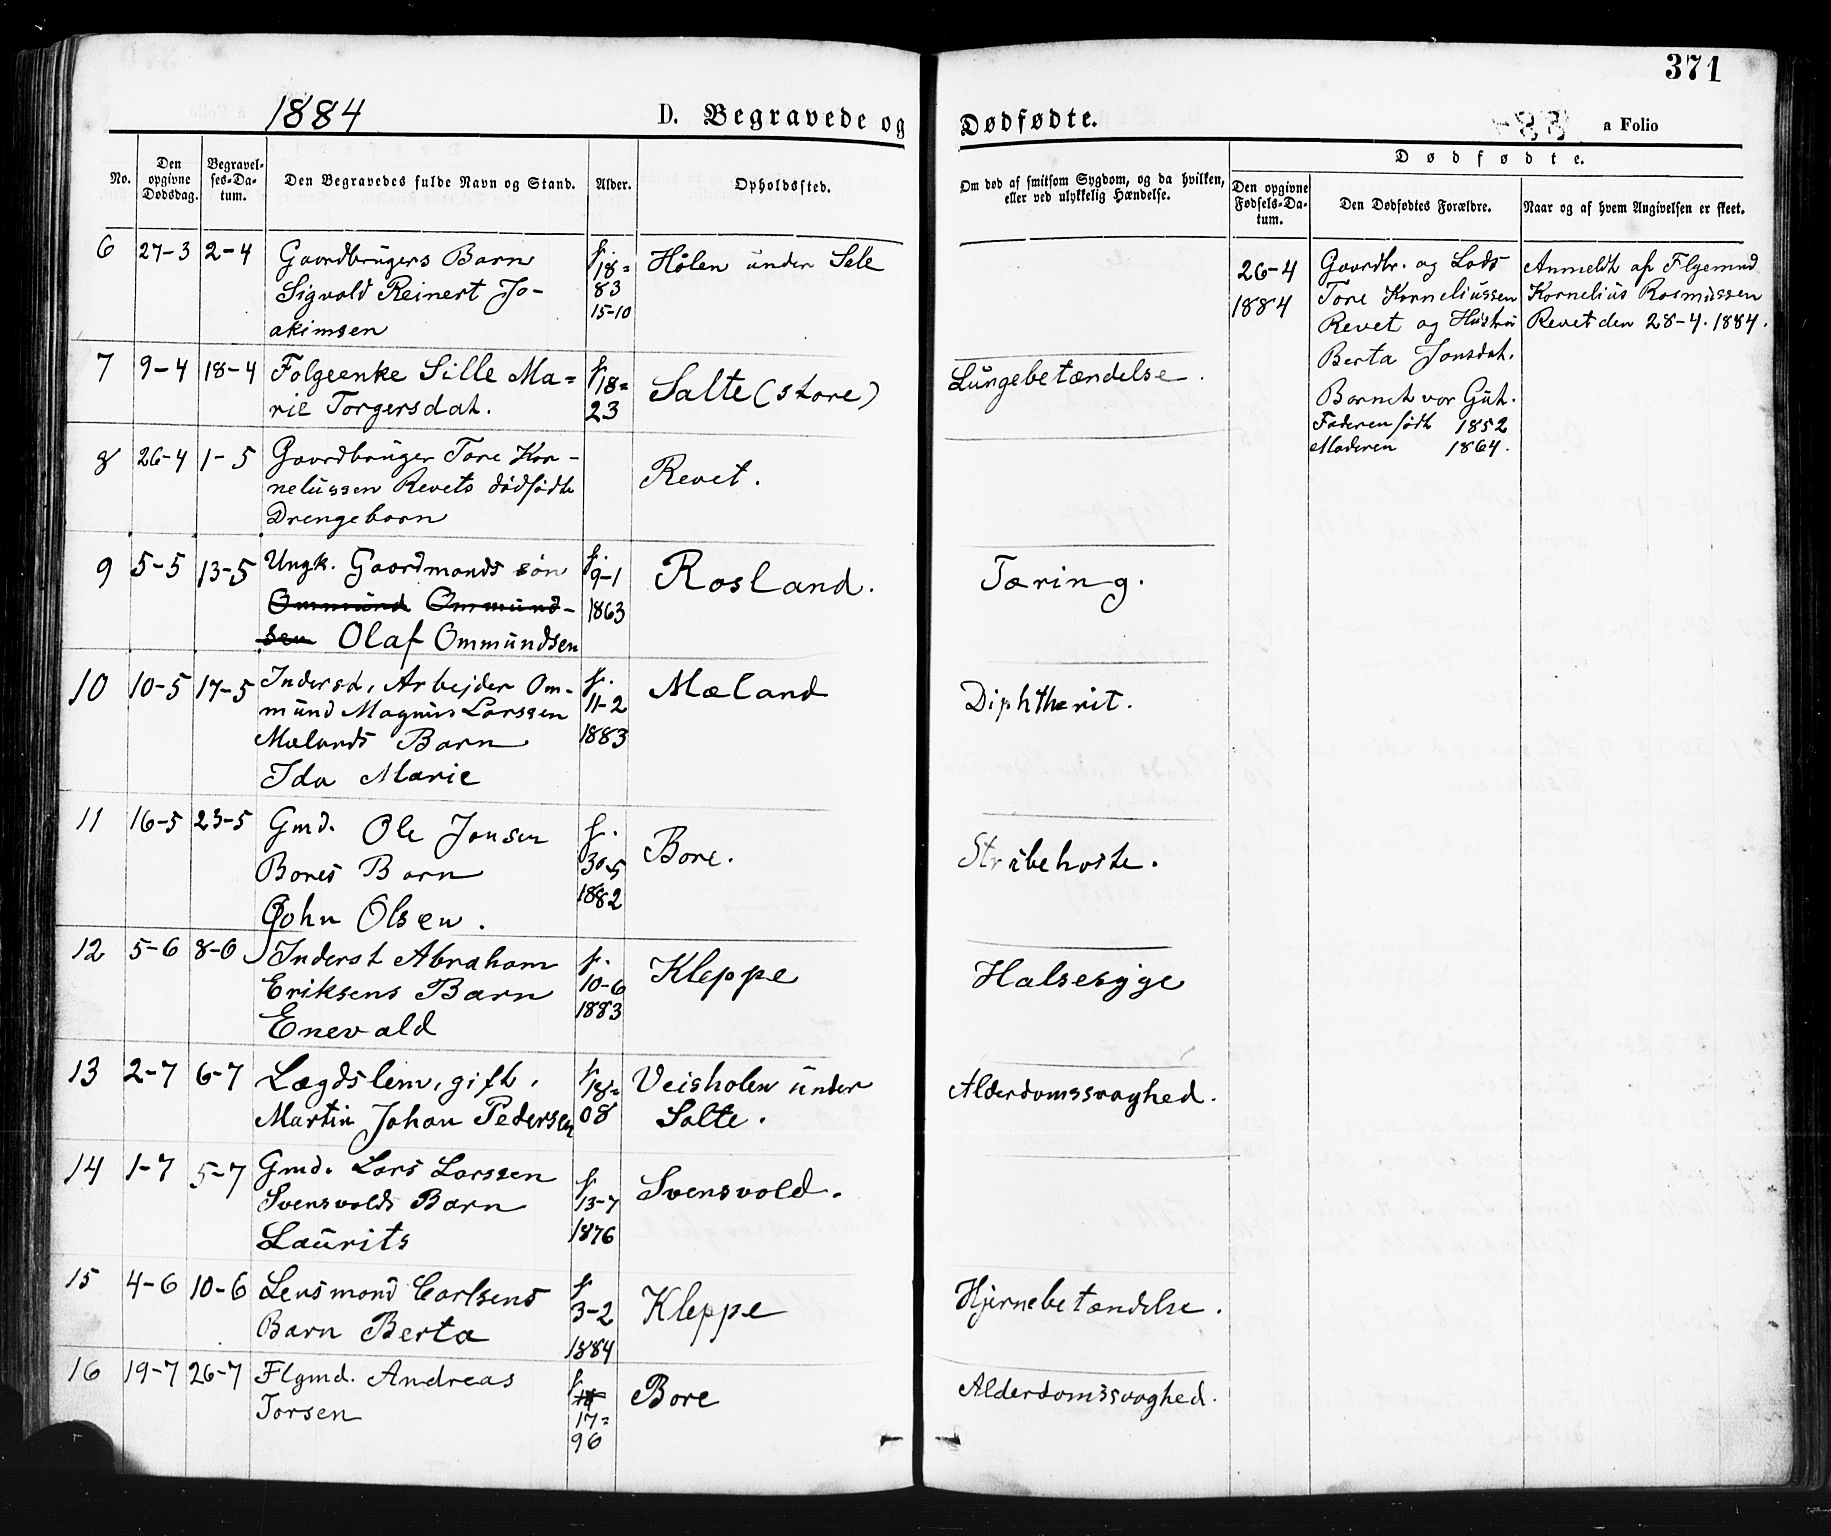 371
1884 D. Begravede og Dødfødte.
a Folio
No. Den opgivne Dødsdag. Begravelses-Datum. Den Begravedes fulde Navn og Stand. Alder. Opholdssted.
Om død af smitsom Sygdom, og da hvilken, eller ved ulykkelig Hændelse.
Dødfødte.
Den opgivne Fødsels-Datum. Den Dødfødtes Forældre. Naar og af hvem Angivelsen er skeet.
6 27-3 2-4 Gaardbrugers Barn f. Hølen under Sele
Sigvald Reinert Jo- 18=
akimsen 83
15-10
7 9-4 18-4 Folgeenke Sille Ma= f 18= Salte (store) Lungebetændelse.
rie Torgersdat. 23
8 26-4 1-5 Gaardbruger Tore Kor- Revet.
neliussen Revets dødfødte
Drengebarn
9 5-5 13-5 Ungk. Gaardmands søn f. 9-1 Rosland. Tæring.
Ommund Ommund- 1863
sen Olaf Ommundsen
10 10-5 17-5 Inderst, Arbejder Om- f. Mæland Diphtherit.
mund Magnus Larssen 11-2
Mælands Barn 1883
Ida Marie
11 16-5 23-5 Gmd. Ole Jonsen f. Bore. Strubehoste.
Bores Barn 30-5
John Olsen. 1882
12 5-6 8-6 Inderst Abraham f. Kleppe Halsesyge
Eriksens Barn 10-6
Enevald 1883
13 2-7 6-7 Lægdslem, gift, f 18= Veisholen under Alderdomssvaghed.
Martin Johan Pedersen 08 Salte.
14 1-7 5-7 Gmd. Lars Larssen f Svensvold.
Svensvolds Barn 13-7
Laurits 1876
15 4-6 10-6 Lensmand Carlsens f Kleppe Hjernebetændelse.
Barn Berta 3-2
1884
16 19-7 26-7 Flgmd. Andreas f Bore Alderdomssvaghed.
Torsen 17=
96
26-4 Gaardbr. og Lods Anmeldt af Flgemnd
1884 Tore Korneliussen Kornelius Rasmussen
Revet og Hustru Revet den 28-4. 1884.
Berta Jonsdat.
Barnet var Gut.
Faderen født 1852
Moderen 1864.